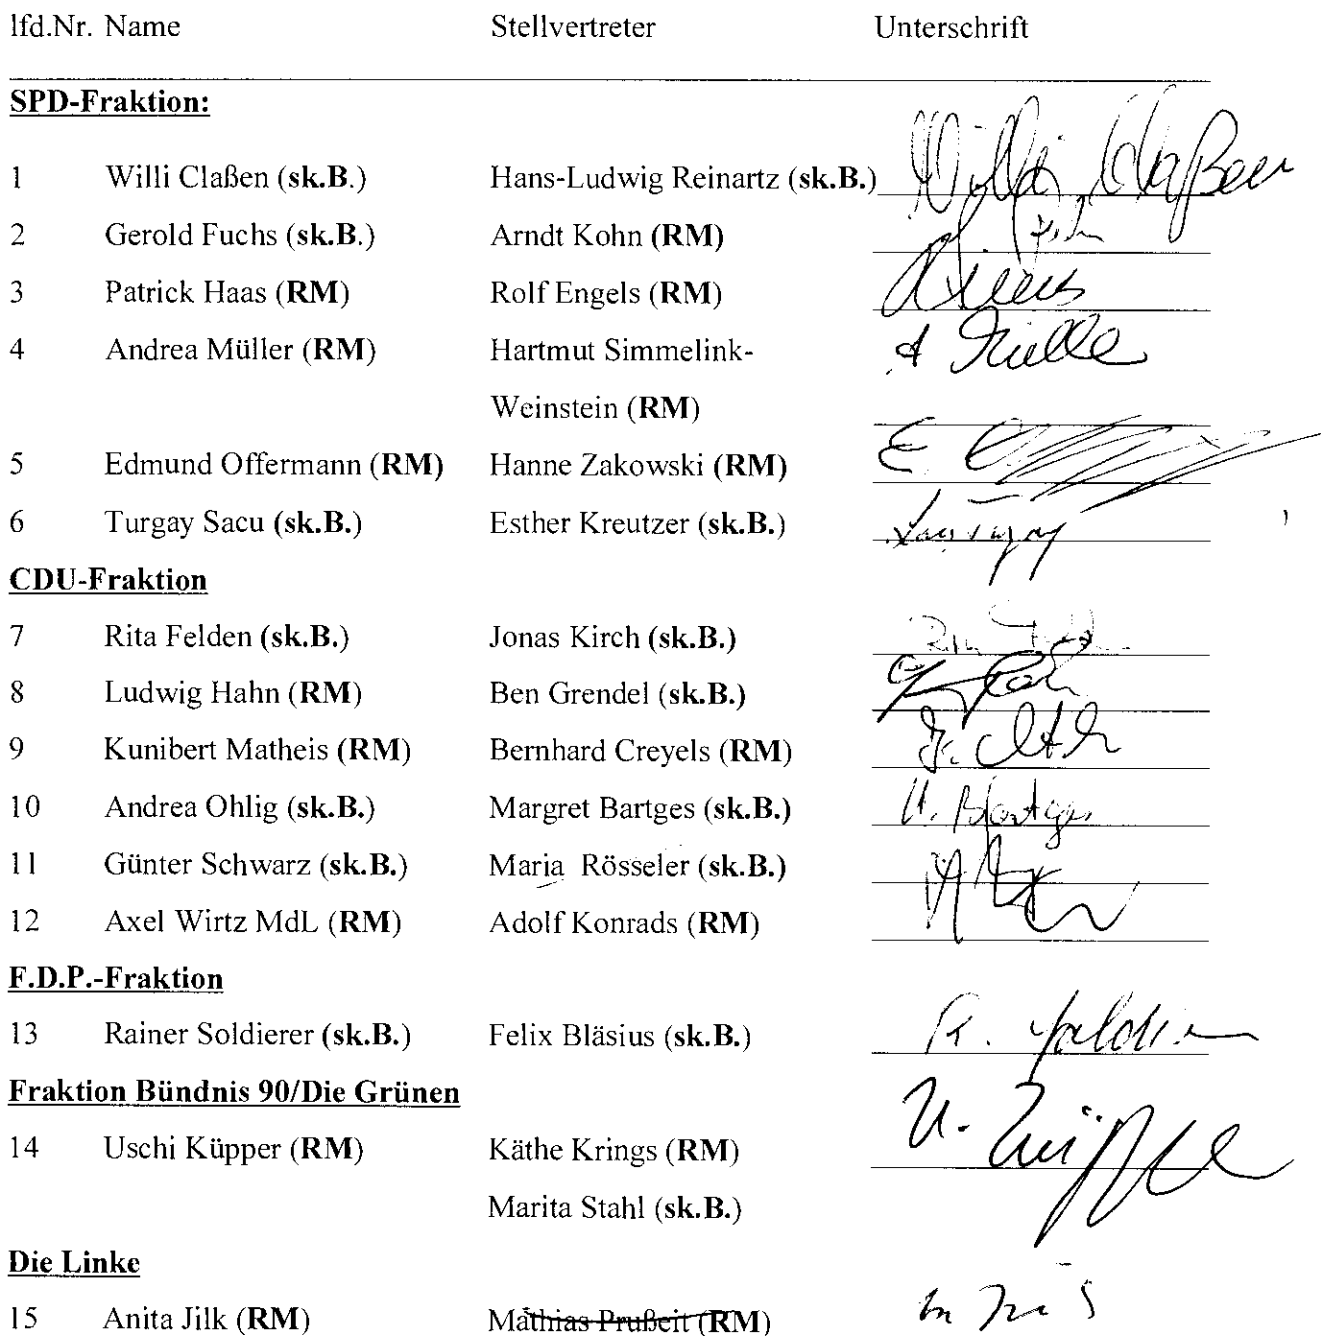 lfd.Nr. Name Stellvertreter Unterschrift
SPD-Fraktion:
1 Willi Claßen (sk.B.) Hans-Ludwig Reinartz (sk.B.) Willi Claßen
2 Gerold Fuchs (sk.B.) Arndt Kohn (RM)
3 Patrick Haas (RM) Rolf Engels (RM)
4 Andrea Müller (RM) Hartmut Simmelink-
Weinstein (RM)
5 Edmund Offermann (RM) Hanne Zakowski (RM)
6 Turgay Sacu (sk.B.) Esther Kreutzer (sk.B.)
CDU-Fraktion
7 Rita Felden (sk.B.) Jonas Kirch (sk.B.)
8 Ludwig Hahn (RM) Ben Grendel (sk.B.)
9 Kunibert Matheis (RM) Bernhard Creyels (RM)
10 Andrea Ohlig (sk.B.) Margret Bartges (sk.B.) Bartges
11 Günter Schwarz (sk.B.) Maria Rösseler (sk.B.)
12 Axel Wirtz MdL (RM) Adolf Konrads (RM)
F.D.P.-Fraktion
13 Rainer Soldierer (sk.B.) Felix Bläsius (sk.B.)
Fraktion Bündnis 90/Die Grünen
14 Uschi Küpper (RM) Käthe Krings (RM) U. Küpper
Marita Stahl (sk.B.)
Die Linke
15 Anita Jilk (RM) Mathias Prußeit (RM)